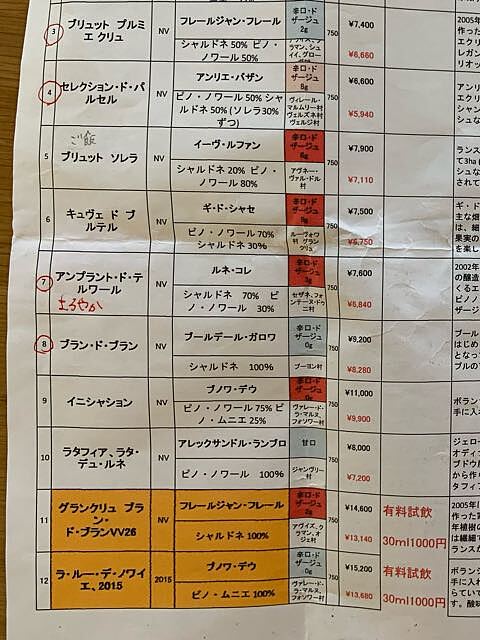 3
ブリュット プルミ
エ クリュ
NV
フレールジャン・フレール
シャルドネ 50% ピノ・
ノワール 50%
辛口・ド
ザージュ
2g
750
¥7,400
¥6,660
2005年
作った
エクリ
レガン
リオッ
4
セレクション・ド・パ
ルセル
NV
アンリエ・バザン
ピノ・ノワール 50% シャ
ルドネ 50% (ソレラ30%
ずつ)
辛口・ド
ザージュ
8g
ヴィレール・
マルムリー村
ヴェルズネ村
ヴェルジ村
750
¥6,600
¥5,940
アンリ
エクリ
シャン
シュな
ご飯
5
ブリュット ソレラ
NV
イーヴ・ルファン
シャルドネ 20% ピノ・
ノワール 80%
辛口・ド
ザージュ
アヴネー・
ヴァル・ドル
村
750
¥7,900
¥7,110
ランス
て3ha(
シュな
されて
6
キュヴェ ド ブ
ルテル
NV
ギ・ド・シャセ
ピノ・ノワール 70%
シャルドネ 30%
辛口・ド
ザージュ
ルーヴォワ
村 グラン
クリュ
750
¥7,500
¥6,750
ギ・ド
主な畑
は、細
果実の
を楽し
7
アンプラント・ド・テ
ルワール
まろやか
NV
ルネ・コレ
シャルドネ 70% ピ
ノ・ノワール 30%
辛口・ド
ザージュ
セザネ、フォ
ンテーヌ・ドゥ
ニ村
750
¥7,600
¥6,840
2002年
の醸造
くるエ
ピノノ
ザージ
8
ブラン・ド・ブラン
NV
プールデール・ガロワ
シャルドネ 100%
辛口・ド
ザージュ
0g
プーヨン村
750
¥9,200
¥8,280
プール
はじめ
となっ
プルの
9
イニシャション
NV
ブノワ・デウ
ピノ・ノワール 75% ピ
ノ・ムニエ 25%
辛口・ド
ザージュ
0g
ヴァレー・ド・
ラ・マルヌ、
フォソワー村
750
¥11,000
¥9,900
ボラン
手に入
10
ラタフィア、ラタ・
デュ・ルネ
NV
アレックサンドル・ランブロ
ピノ・ノワール 100%
甘口
ジャンヴリー
村
750
¥8,000
¥7,200
ジェロー
オディ
ブドウ
から作り
タフィ
11
グランクリュ ブラ
ン・
ド・ブランVV26
NV
フレールジャン・フレール
シャルドネ 100%
辛口・ド
ザージュ
2g
アヴィズ、ク
ラマン、オ
ジェ村
750
¥14,600
¥13,140
有料試飲
30ml1000円
2005年
作った
年植樹の
は繊細で
ランスが
12
ラ・ルー・デ・ノワイ
エ、2015
2015
ブノワ・デウ
ピノ・ムニエ 100%
辛口・ド
ザージュ
0g
ヴァレー・ド・
ラ・マルヌ、
フォソワー村
750
¥15,200
¥13,680
有料試飲
30ml1000円
ボランジ
手に入れ
らている
す。酸味